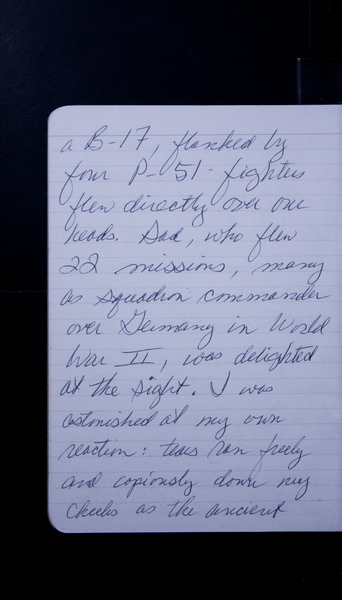 a B-17, flanked by
four P-51 fighters
flew directly over our
heads. Dad, who flew
22 missions, many
as squadron commander
over Germany in World
War II, was delighted
at the sight. I was
astonished at my own
reaction: tears ran freely
and copiously down my
cheeks as the ancient